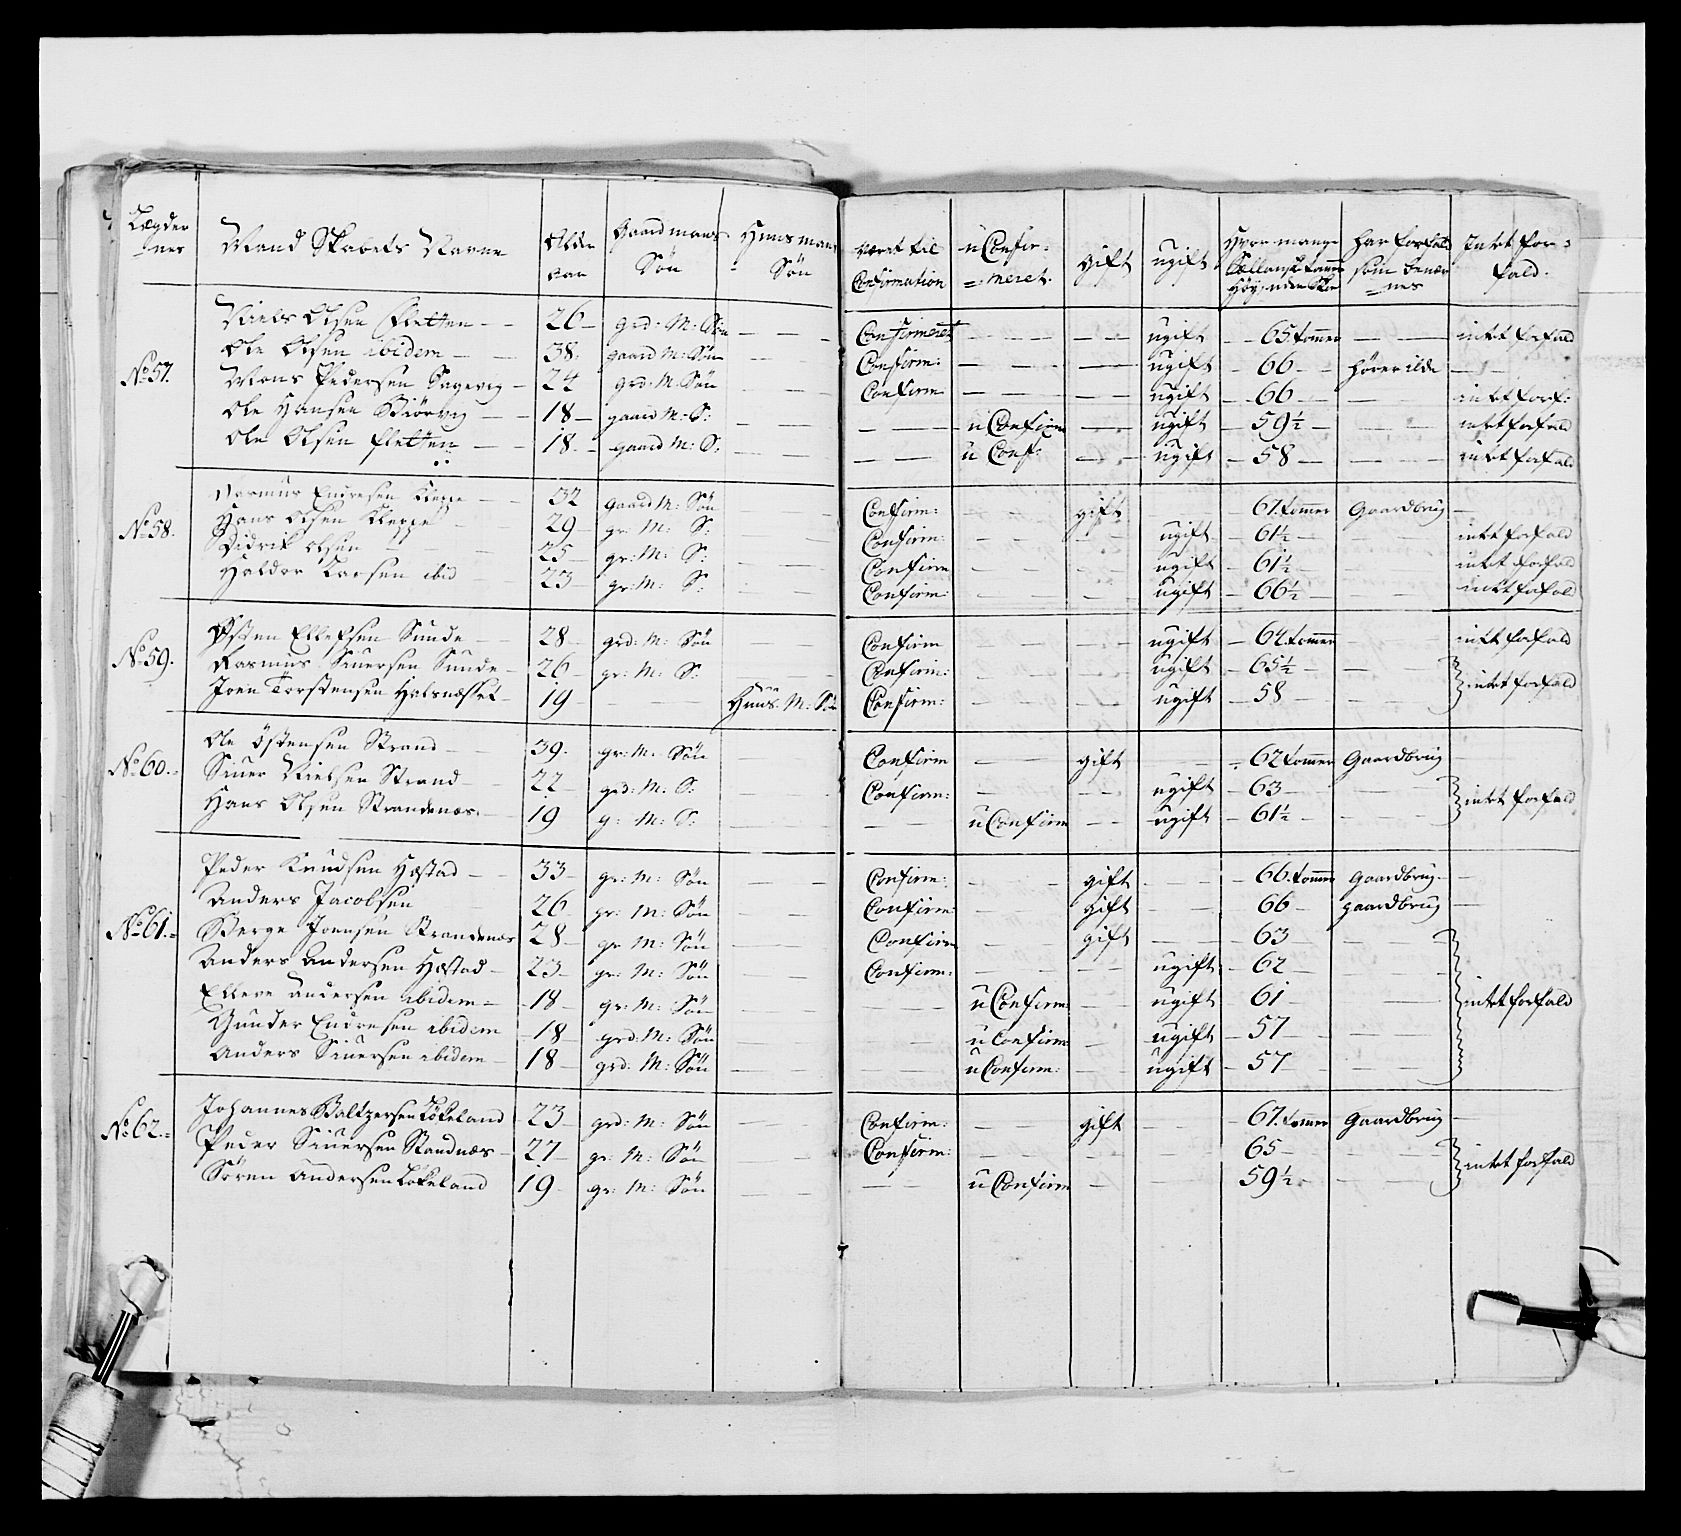 Lægder nes | Mand Skabets Navne | Alder aar | Gaardmans Søn | Huusmans Søn | Været til Confirmation | uConfir: meret. | gift | ugift | Hvor mange Siællansk tommer Høy, uden Skoe | har forfald som benæv nes | Intet for= fald.
Niels Olsen Fletten | 26 | grd: M: Søn | — | Confirmeret | — | — | ugift | 65. tommer | — | intet forfald
Ole Olsen ibidem | 38. | gaard M: Søn | — | Confirm: | — | — | ugift | 66 | hører ilde | —
No 57. Mons Pedersen Sagevig | 24 | grd: M: Søn | — | Confirm | — | — | ugift | 66 | — | intet forf:
Ole Hansen Biørvig | 18 | gaard M: S: | — | — | uConfirm | — | ugift | 59½ | — | intet forfald
Ole Olsen Fletten | 18 | gaard M: S: | — | — | u Conf: | — | ugift | 58 | — | intet forfald
Rasmus Endresen Kleppe | 32 | gaard M: Søn | — | Confirm: | — | gift | — | 67. tommer | Gaardbrug | —
No 58. Hans Olsen Kleppe | 29 | gr: M: S: | — | Confirm: | — | — | ugift | 61½ | — | intet forfald
Didrik Olsen | 25 | gr: M: S: | — | Confirm | — | — | ugift | 61½ | — | intet forfald
Haldor Larsen ibid | 23 | gr: M: S: | — | Confirm: | — | — | ugift | 66½ | — | intet forfald
Østen Ellefsen Sunde | 28 | grd: M: Søn | — | Confirm | — | — | ugift | 64. tommer | — | intet forfald
No 59. Rasmus Siversen Sunde | 26 | gr: M: S: | — | Confirm: | — | — | ugift | 65½ | — | intet forfald
Joen Torstensen Halsnæsset | 19 | — | Huus M: Søn | Confirm: | — | — | ugift | 58 | —
Ole Østensen Strand | 39. | gr: M: Søn | — | Confirm | — | gift | — | 62 tommer | Gaardbrug | —
No 60. Siver Nielsen Strand | 22 | grd: M: S: | — | Confirm: | — | — | ugift | 63 | — | intet forfald
Hans Olsen Strandenæs | 19 | g: M: S: | — | — | uConfirm | — | ugift | 61½ | —
Peder Knudsen Hæstad | 33 | gr: M: Søn | — | Confirm: | — | gift | — | 66. tommer | gaardbrug | —
Anders Jacobsen | 26 | gr: M: Søn | — | Confirm: | — | gift | — | 66 | gaardbrug | —
No 61. Berge Joensen Strandenæs | 28 | gr M: Søn | — | Confirm | — | gift | — | 63 | —
Anders Andersen Hæstad | 23 | gr: M: Søn | — | Confirm: | — | — | ugift | 62 | —
Elleve Andersen ibidem | 18 | gr: M: Søn | — | — | uConfirm: | — | ugift | 61 | — | intet forfald
Gunder Endresen ibidem | 18 | grd: M: Søn | — | — | uConfirm: | — | ugift | 57 | —
Anders Siversen ibidem | 18 | grd: M: Søn | — | — | uConfirm: | — | ugift | 57 | —
No 62. Johannes Baltzersen Løkeland | 23 | grd: M: Søn | — | Confirm: | — | gift | — | 67. tommer | Gaardbrug | —
Peder Siversen Standnæs | 27 | gr: M: Søn | — | Confirm: | — | — | — | 65 | — | intet forfald
Søren Andersen Løkeland | 19 | gr: M: Søn | — | — | uConfirm | — | — | 59½ | —